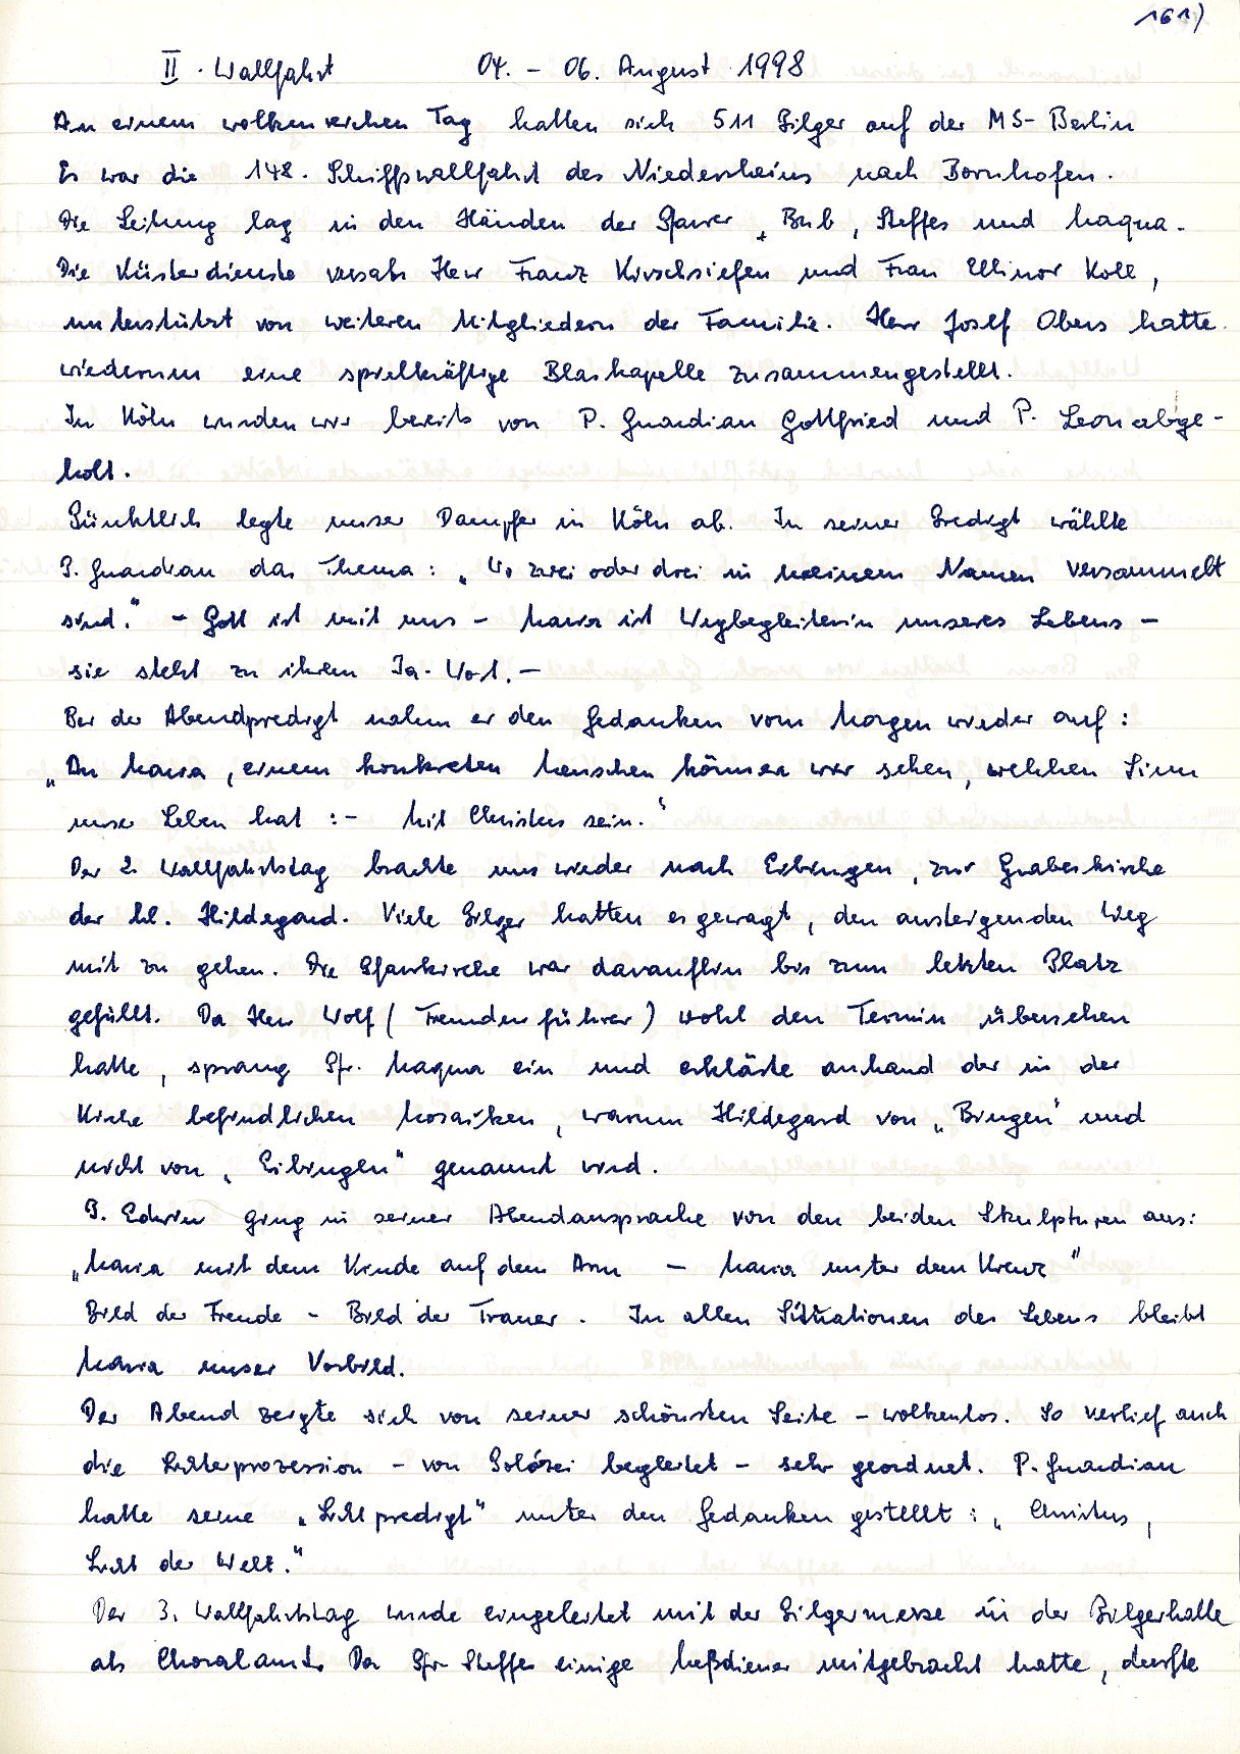 161)
II. Wallfahrt 04. - 06. August 1998
An einem wolkenreichen Tag hatten sich 511 Pilger auf der MS- Berlin
Es war die 148. Schiffswallfahrt des Niederrheins nach Bornhofen.
Die Leitung lag in den Händen der Pfarrer Bub, Steffes und Maqua.
Die Küsterdienste versah Herr Franz Kirschsiefen und Frau Ellinor Koll,
unterstützt von weiteren Mitgliedern der Familie. Herr Josef Obers hatte
wiederum eine spielkräftige Blaskapelle zusammengestellt.
In Köln wurden wir bereits von P. Guardian Gottfried und P. Leon abge-
holt.
Pünktlich legte unser Dampfer in Köln ab. In seiner Predigt wählte
P. Guardian das Thema: „Wo zwei oder drei in meinem Namen versammelt
sind." - Gott ist mit uns - Maria ist Wegbegleiterin unseres Lebens -
sie steht zu ihrem Ja-Wort. -
Bei der Abendpredigt nahm er den Gedanken vom Morgen wieder auf:
„An Maria, einem konkreten Menschen können wir sehen, welchen Sinn
unser Leben hat :- Mit Christus sein."
Der 2. Wallfahrtstag brachte uns wieder nach Eibingen, zur Grabeskirche
der hl. Hildegard. Viele Pilger hatten es gewagt, den ansteigenden Weg
mit zu gehen. Die Pfarrkirche war daraufhin bis zum letzten Platz
gefüllt. Da Herr Wolf (Fremdenführer) wohl den Termin übersehen
hatte, sprang Pfr. Maqua ein und erklärte anhand der in der
Kirche befindlichen Mosaiken, warum Hildegard von „Bingen" und
nicht von „Eibingen" genannt wird.
P. Edwin ging in seiner Abendansprache von den beiden Skulpturen aus:
„Maria mit dem Kinde auf dem Arm - Maria unter dem Kreuz"
Bild der Freude - Bild der Trauer. In allen Situationen des Lebens bleibt
Maria unser Vorbild.
Der Abend zeigte sich von seiner schönsten Seite - wolkenlos. So verlief auch
die Lichterprozession - von Polizei begleitet - sehr geordnet. P. Guardian
hatte seine „Lichtpredigt" unter den Gedanken gestellt: „Christus,
Licht der Welt."
Der 3. Wallfahrtstag wurde eingeleitet mit der Pilgermesse in der Pilgerhalle
als Choralamt. Da Pfr. Steffes einige Meßdiener mitgebracht hatte, durfte